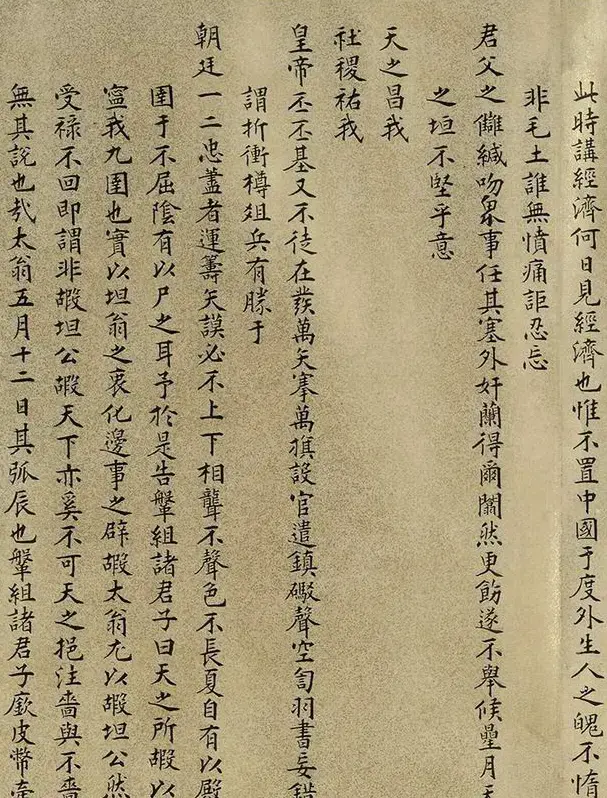 此時講經濟何日見經濟也惟不置中國于度外生人之魄不惰
非毛土誰無憤痛詎忍忘
君父之讎緘吻梟事任其塞外奸蘭得爾闌然更飭遂不舉候壘月
之垣不堅乎意
天之昌我
社稷祐我
皇帝丕丕基又不徒在發萬矢搴萬旗設官遣鎮礮聲空訇羽書妄錯
謂折衝樽俎兵有勝于
朝廷一二忠藎者運籌矢謨必不上下相聾不聲色不長夏自有以殿
圉于不屈陰有以尸之耳予於是告鞶組諸君子曰天之所嘏以
寧我九圉也實以坦翁之衷化邊事之辟嘏太翁尤以嘏坦公然
受祿不回即謂非嘏坦公嘏天下亦奚不可天之挹注嗇與不嗇
無其說也哉太翁五月十二日其弧辰也鞶組諸君子廞皮幣牽